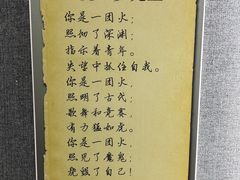 你是一团火；
照彻了深渊；
指示着青年。
失望中抓住自我。
你是一团火，
照明了古代；
歌舞和竞赛，
有力猛如虎。
你是一团火，
照见了魔鬼；
烧毁了自己！